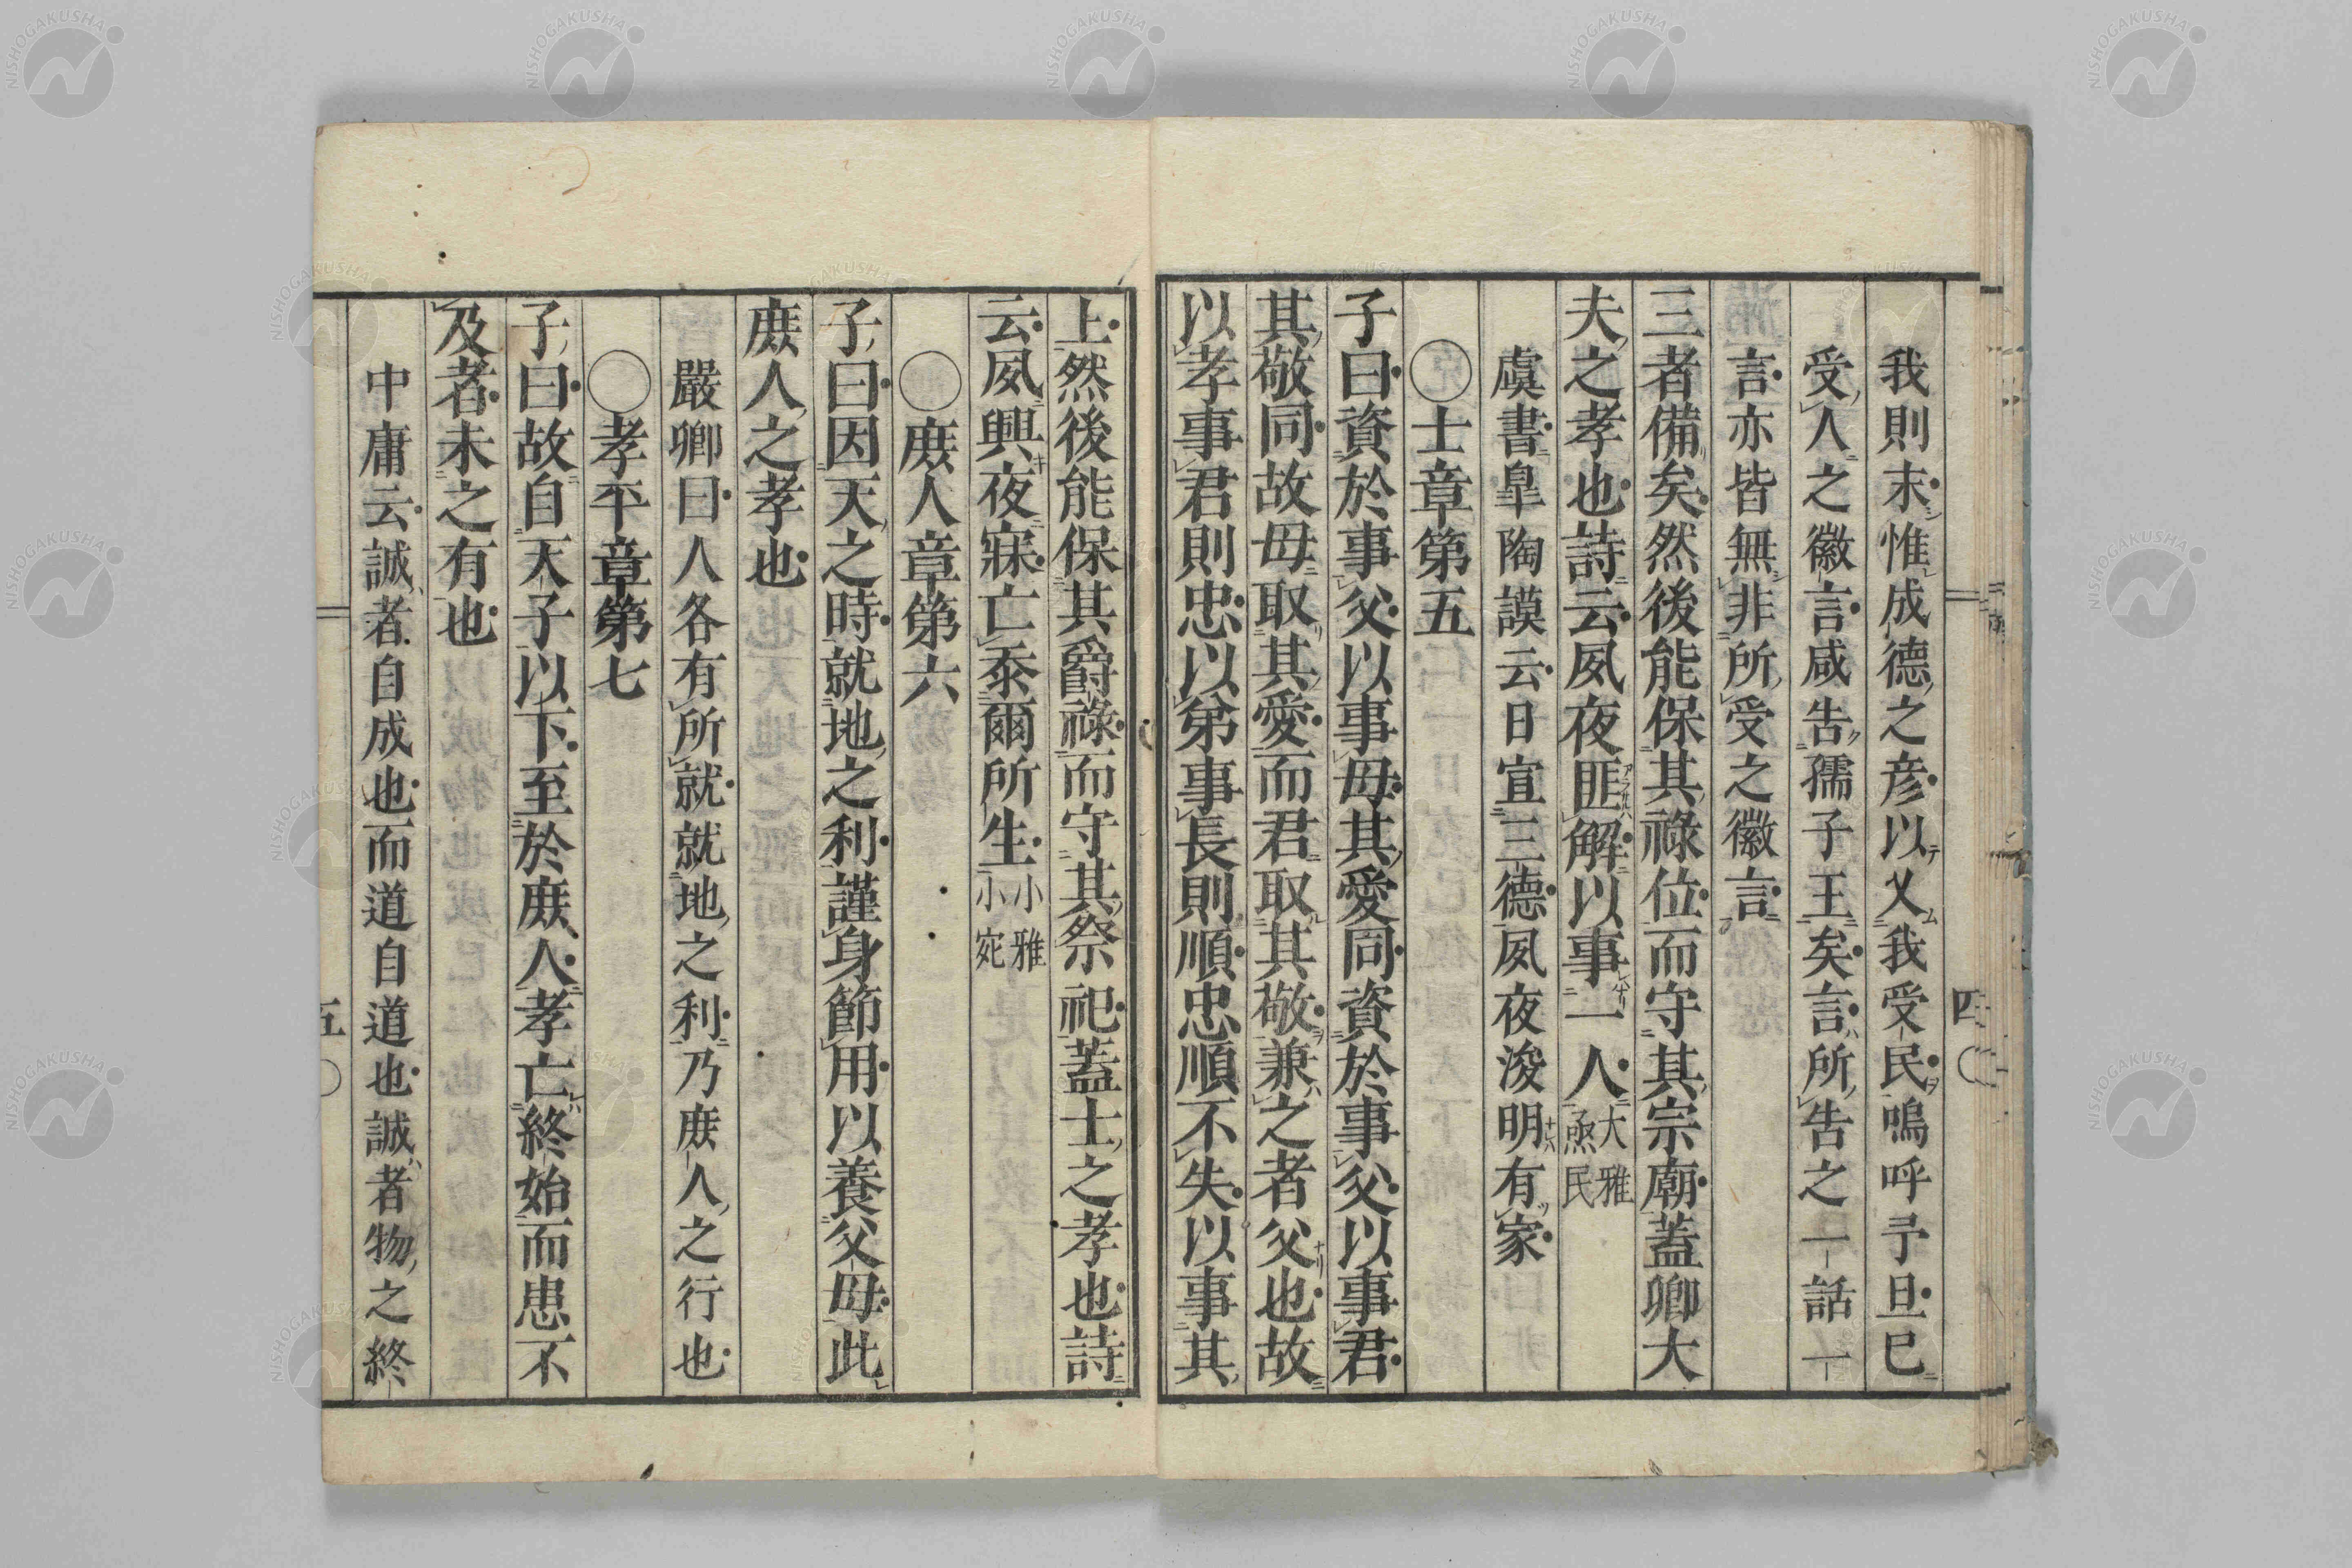 我則末惟成德之彦以乂我受民嗚呼予旦巳
受人之徽言咸告孺子王矣言所告之一話一
言亦皆無非所受之徽言
三者備矣然後能保其祿位而守其宗廟蓋卿大
夫之孝也詩云夙夜匪解以事一人大雅烝民
虞書皐陶謨云日宣三德夙夜浚明有家
○士章第五
子曰資於事父以事母其愛同資於事父以事君
其敬同故母取其愛而君取其敬兼之者父也故
以孝事君則忠以弟事長則順忠順不失以事其
四
上然後能保其爵祿而守其祭祀蓋士之孝也詩
云夙興夜寐亡忝爾所生小雅小宛
○庶人章第六
子曰因天之時就地之利謹身節用以養父母此
庶人之孝也
嚴卿曰人各有所就就地之利乃庶人之行也
○孝平章第七
子曰故自天子以下至於庶人孝亡終始而患不
及者未之有也
中庸云誠者自成也而道自道也誠者物之終
五
NISHOGAKUSHA